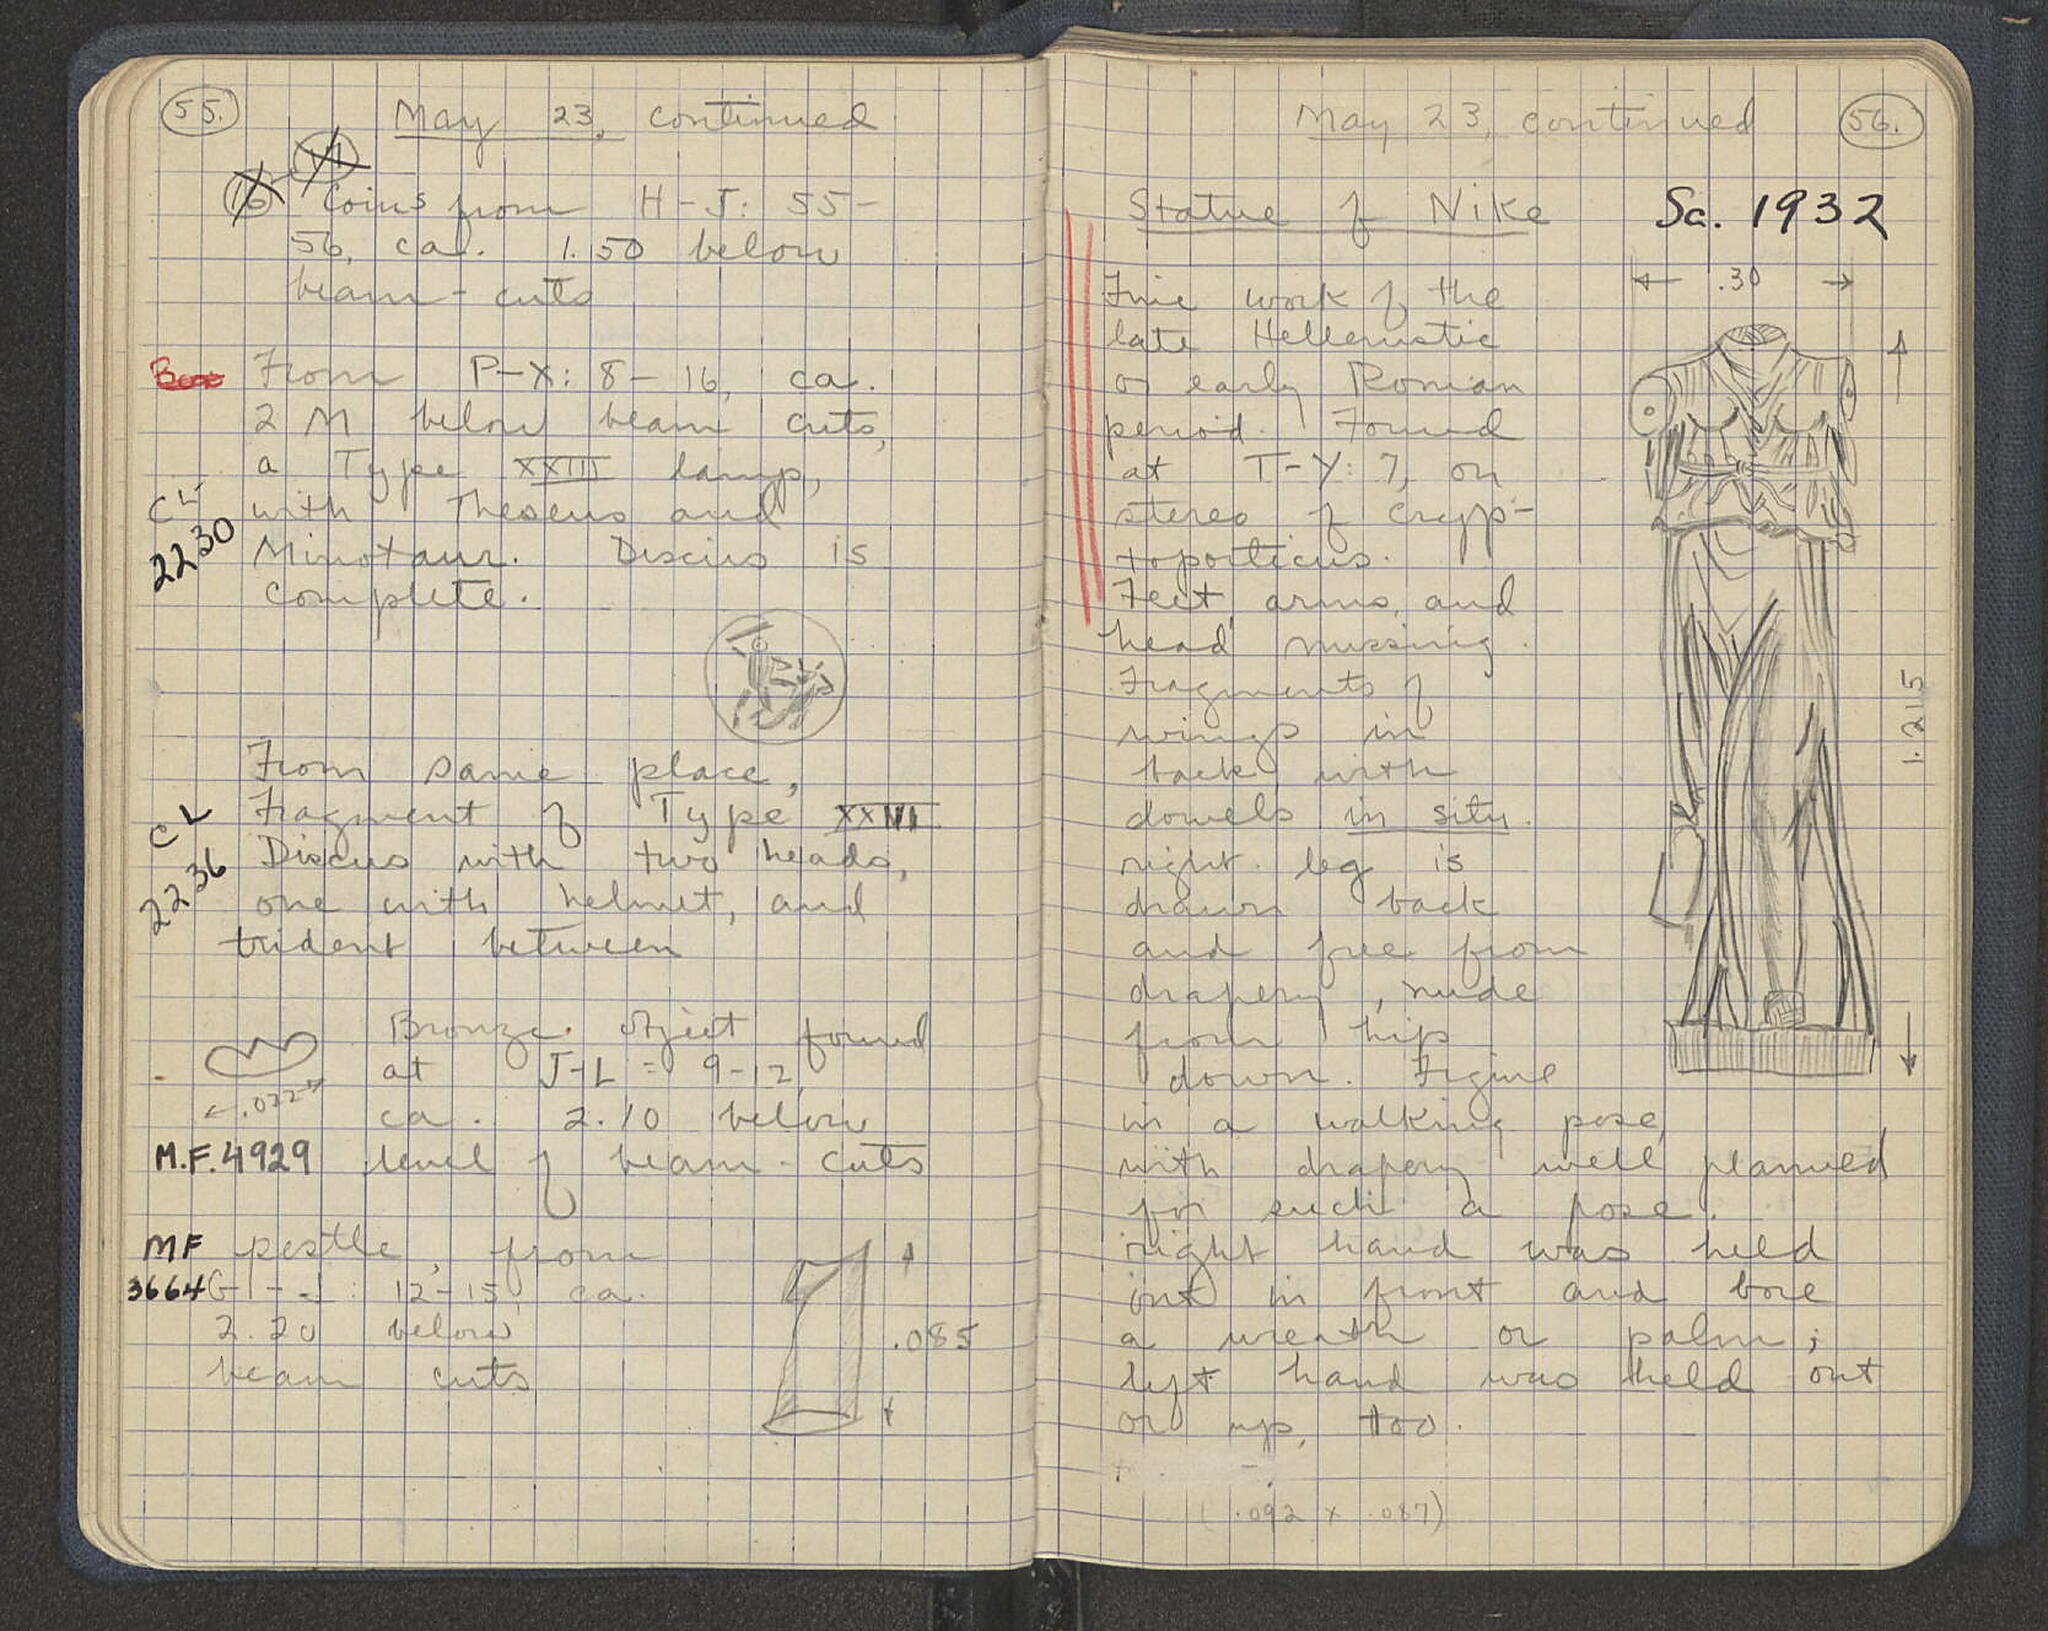 55.
May 23, continued
17
16
Coins from H-J: 55-
56, ca. 1.50 below
beam-cuts
From P-X: 8-16, ca.
2 M below beam cuts,
a Type XXIII lamp,
CL
2230
with Theseus and
Minotaur. Discus is
complete.
From same place,
CL
2236
Fragment of Type XXIII
Discus with two heads,
one with helmet, and
trident between
Bronze object found
at J-L: 9-12,
.022
ca. 2.10 below
M.F. 4929 level of beam-cuts
MF
3664
pestle, from
G-J: 12-15, ca.
2.20 below
beam cuts
.085
May 23, continued
56.
Statue of Nike
Sa. 1932
.30
1.215
Fine work of the
late Hellenistic
or early Roman
period. Found
at T-Y: 7, on
stereo of cryp-
toporticus.
Feet, arms, and
head missing.
Fragments of
wings in
back with
dowels in situ.
right leg is
drawn back
and free from
drapery, nude
from hip
down. Figure
in a walking pose,
with drapery well planned
for such a pose.
right hand was held
out in front and bore
a wreath or palm;
left hand was held out
or up, too.
(.092 x .067)